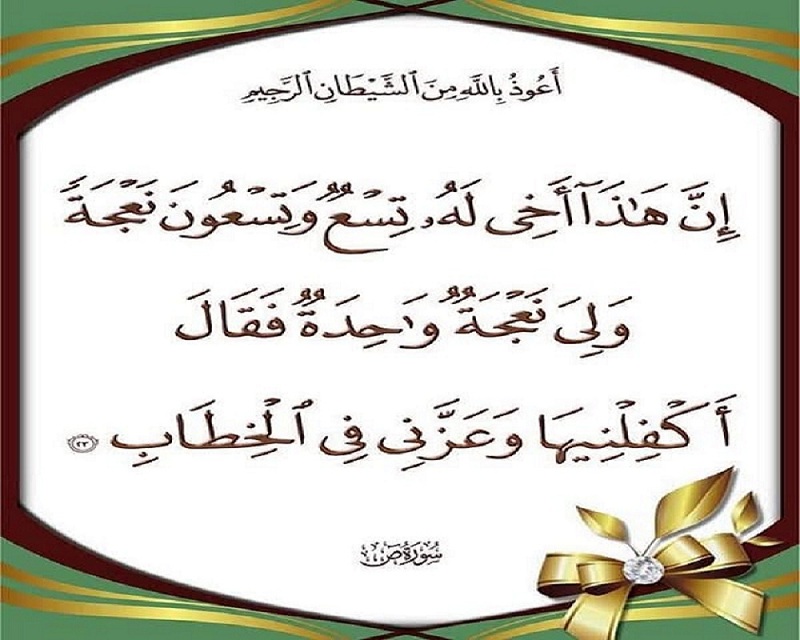 أَعُوذُ بِاللَّهِ مِنَ ٱلشَّيْطَانِ ٱلرَّجِيمِ
إِنَّ هَٰذَآ أَخِى لَهُۥ تِسْعٌ وَتِسْعُونَ نَعْجَةً
وَلِىَ نَعْجَةٌ وَٰحِدَةٌ فَقَالَ
أَكْفِلْنِيهَا وَعَزَّنِى فِى ٱلْخِطَابِ ٢٣
سُورَةُ ص